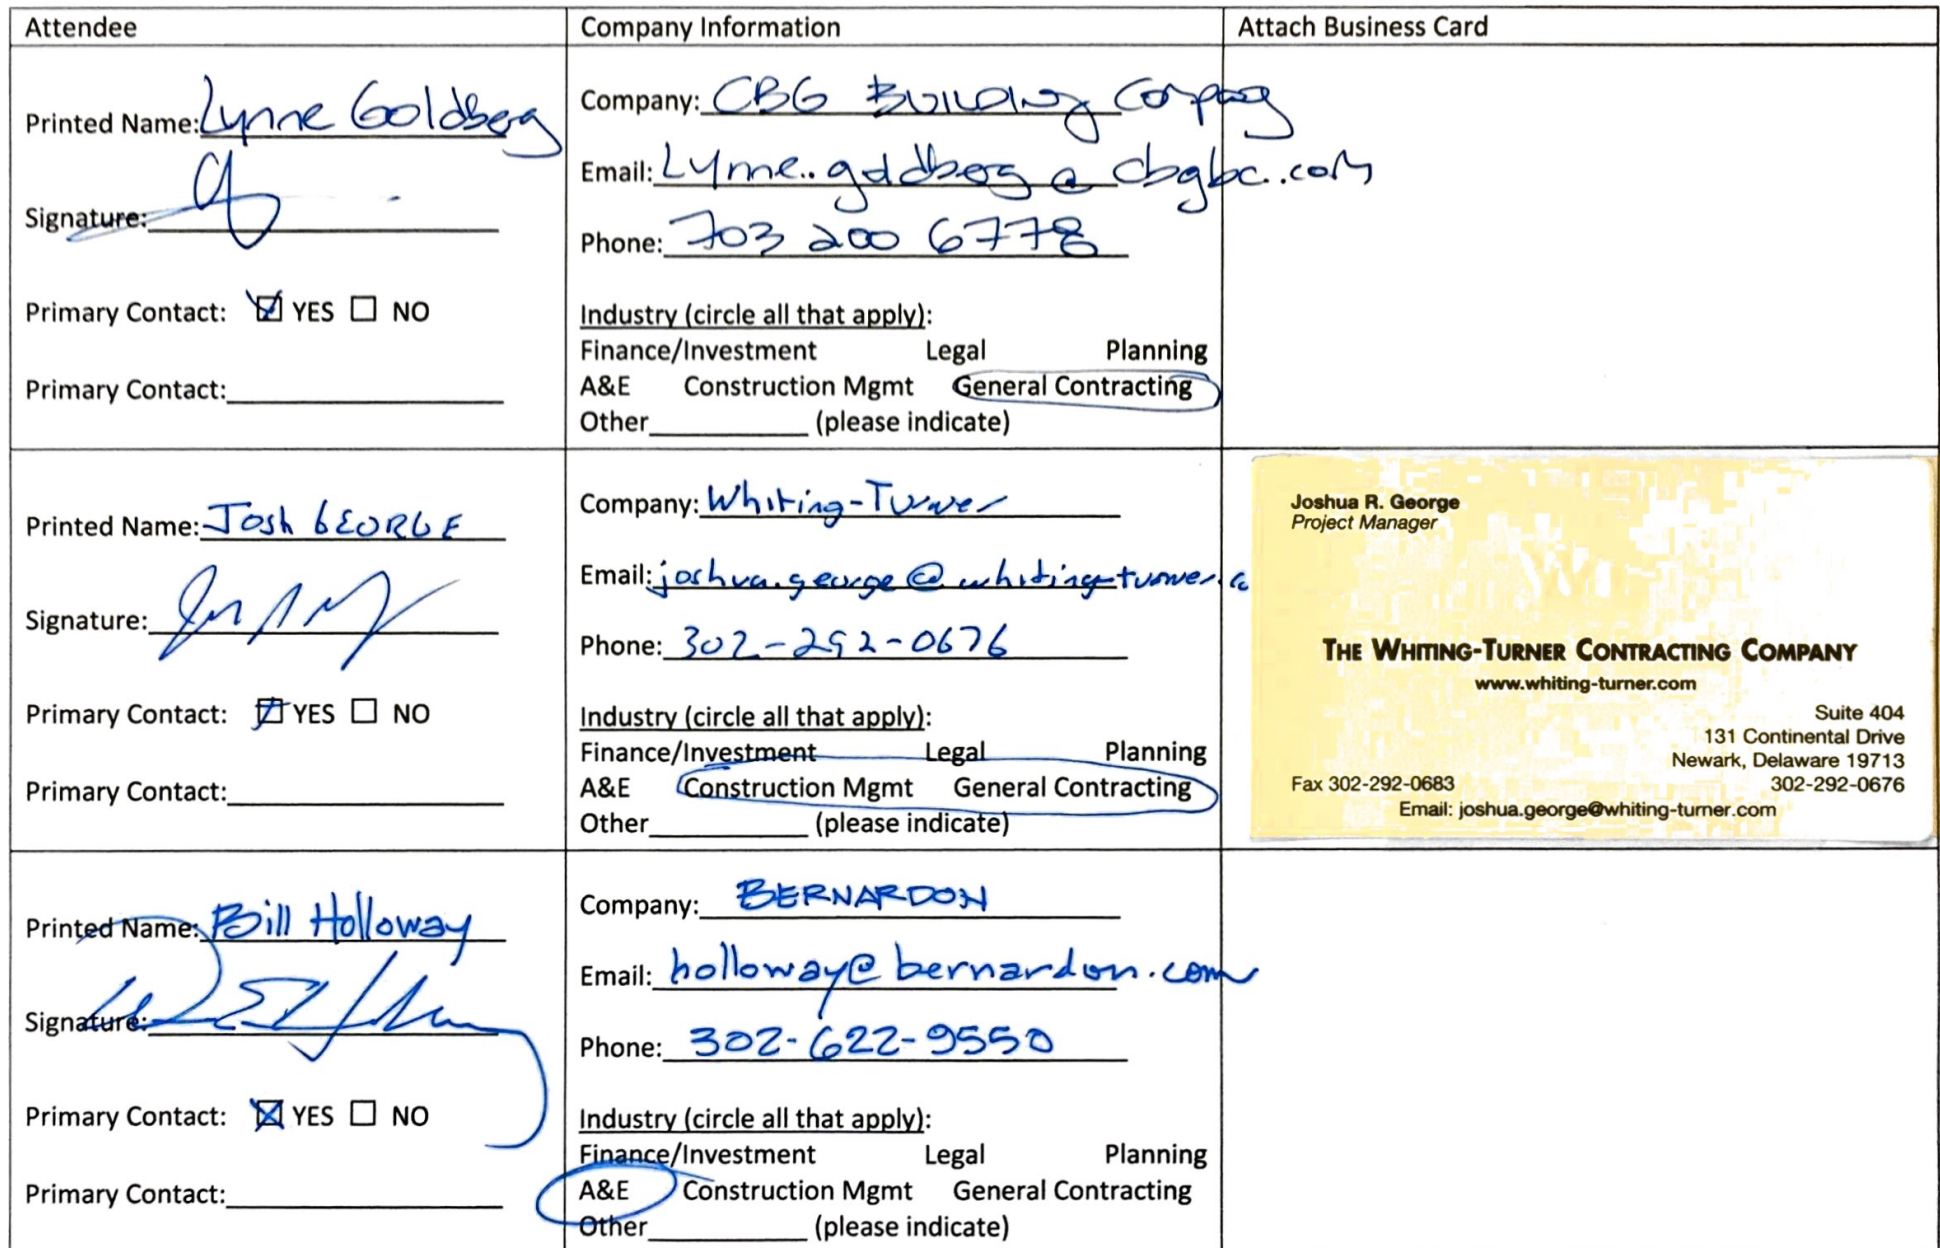 Attendee
Company Information
Attach Business Card
Printed Name: Lynne Goldberg
Signature:
Primary Contact: YES NO
Primary Contact:
Company: CBG Building Company
Email: Lynne.goldberg@cbgbc.com
Phone: 703 200 6778
Industry (circle all that apply):
Finance/Investment Legal Planning
A&E Construction Mgmt General Contracting
Other__________ (please indicate)
Printed Name: Josh GEORGE
Signature:
Primary Contact: YES NO
Primary Contact:
Company: Whiting-Turner
Email: joshua.george@whiting-turner.co
Phone: 302-292-0676
Industry (circle all that apply):
Finance/Investment Legal Planning
A&E Construction Mgmt General Contracting
Other__________ (please indicate)
Joshua R. George
Project Manager
THE WHITING-TURNER CONTRACTING COMPANY
www.whiting-turner.com
Suite 404
131 Continental Drive
Newark, Delaware 19713
Fax 302-292-0683 302-292-0676
Email: joshua.george@whiting-turner.com
Printed Name: Bill Holloway
Signature:
Primary Contact: YES NO
Primary Contact:
Company: BERNARDON
Email: holloway@bernardon.com
Phone: 302-622-9550
Industry (circle all that apply):
Finance/Investment Legal Planning
A&E Construction Mgmt General Contracting
Other__________ (please indicate)